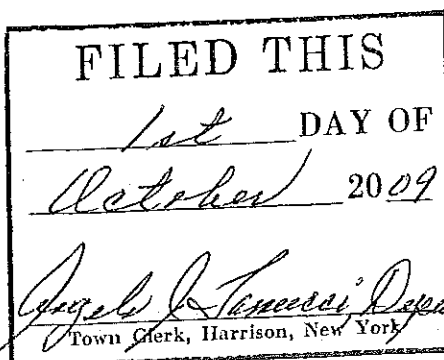 FILED THIS
1st DAY OF
October 2009
Angelo J
Town Clerk, Harrison, New York